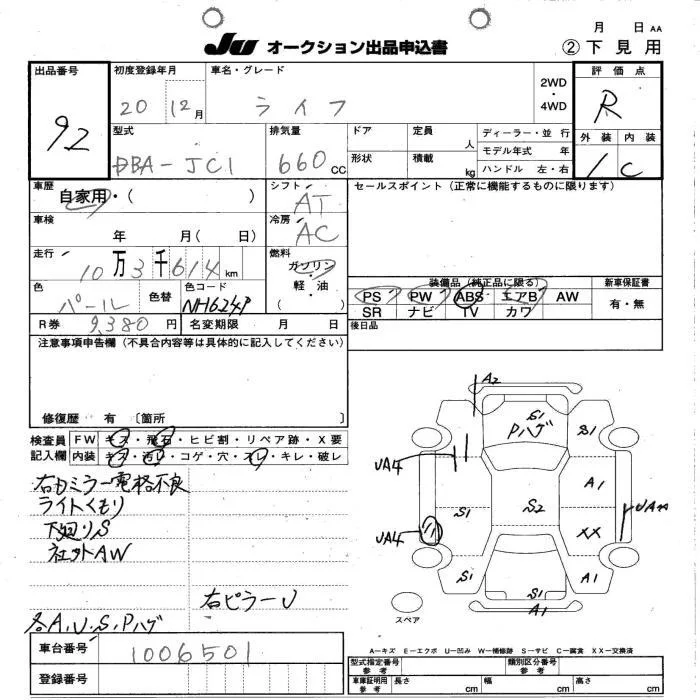 月 日 AA
JU オークション出品申込書 ②下見用
出品番号 初度登録年月 車名・グレード 2WD・4WD 評価点
92 20 12月 ライフ R
型式 排気量 ドア 定員 人 ディーラー・並行 外装 内装
DBA-JC1 660cc 形状 積載 kg モデル年式 年 1 C
ハンドル 左・右
車歴 シフト セールスポイント(正常に機能するものに限ります)
自家用・( ) AT
車検 冷房
年 月( 日) AC
走行 燃料
10万3千614km ガソリン・軽油
色 色替 色コード ( ) 装備品(純正品に限る) 新車保証書
パール NH624P PS PW ABS エアB AW 有・無
R券 9,380円 名変期限 月 日 SR ナビ TV カワ
注意事項申告欄(不具合内容等は具体的に記入してください) 後日品
修復歴 有 〔箇所 〕
検査員記入欄 FW キズ・飛石・ヒビ割・リペア跡・X要
内装 キズ・汚レ・コゲ・穴・スレ・キレ・破レ
右Mミラー電格不良
ライトくもり
下廻りS
社外AW
右ピラーU
各A,U,S,Pハゲ
A2
S1
Pハゲ
S1
UA4
A1
S1
S2
UA4
XX
S1
S1
A1
A1
スペア
A－キズ E－エクボ U－凹み W－補修跡 S－サビ C－腐食 XX－交換済
車台番号 1006501
型式指定番号 参考 類別区分番号 参考
登録番号
車庫証明用 参考 長さ cm 幅 cm 高さ cm